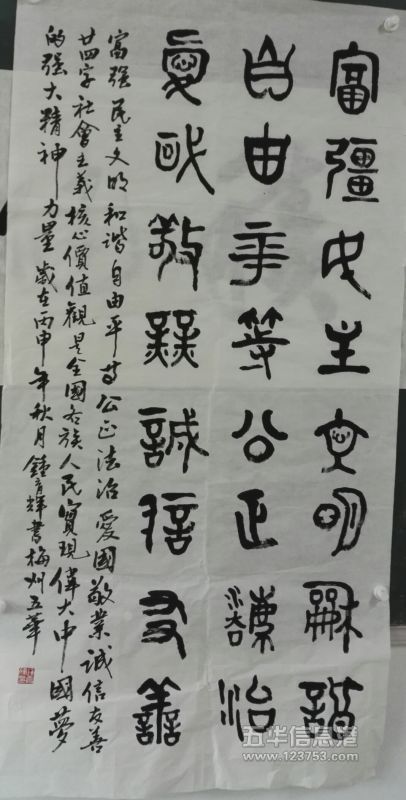 富彊民主文明龢諧
自由平等公正灋治
愛或敬業誠信友譱
富强民主文明和谐自由平等公正法治愛國敬業诚信友善
廿四字社會主義核心價值觀是全國各族人民實現偉大中國夢
的强大精神力量歲在丙申年秋月鍾育輝書梅州五華
五华信息港
www.123753.com